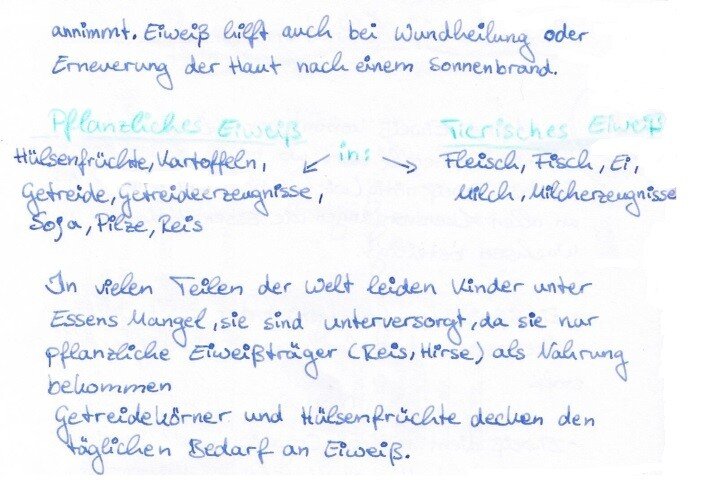 annimmt. Eiweiß hilft auch bei Wundheilung oder
Erneuerung der Haut nach einem Sonnenbrand.
Pflanzliches Eiweiß
in:
Tierisches Eiweiß
Hülsenfrüchte, Kartoffeln,
Getreide, Getreideerzeugnisse,
Soja, Pilze, Reis
Fleisch, Fisch, Ei,
Milch, Milcherzeugnisse
In vielen Teilen der Welt leiden Kinder unter
Essens Mangel, sie sind unterversorgt, da sie nur
pflanzliche Eiweißträger (Reis, Hirse) als Nahrung
bekommen
Getreidekörner und Hülsenfrüchte decken den
täglichen Bedarf an Eiweiß.